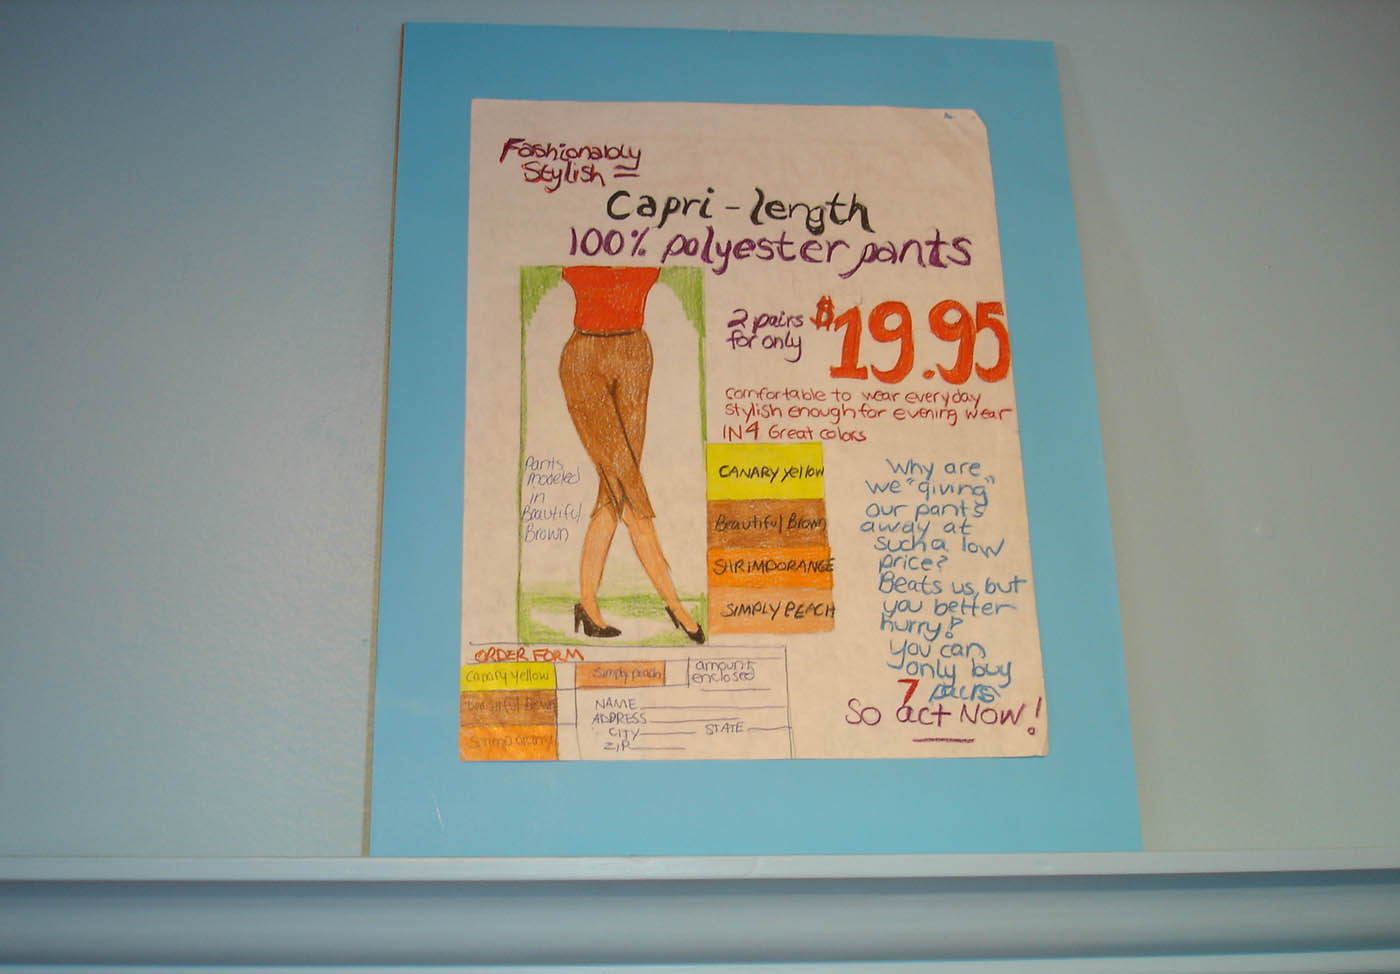 Fashionably
Stylish =
Capri - length
100% polyester pants
2 pairs
for only
$19.95
comfortable to wear everyday
stylish enough for evening wear
IN 4 Great colors
Pants
modeled
in
Beautiful
Brown
CANARY Yellow
Beautiful Brown
SHRIMPORANGE
SIMPLY PEACH
Why are
we "giving"
our pants
away at
such a low
price?
Beats us, but
you better
hurry!
You can
only buy
7 pairs
So act NOW!
ORDER FORM
Canary yellow
Beautiful Brown
Shrimp orange
Simply peach
amount
enclosed
NAME
ADDRESS
CITY STATE
ZIP